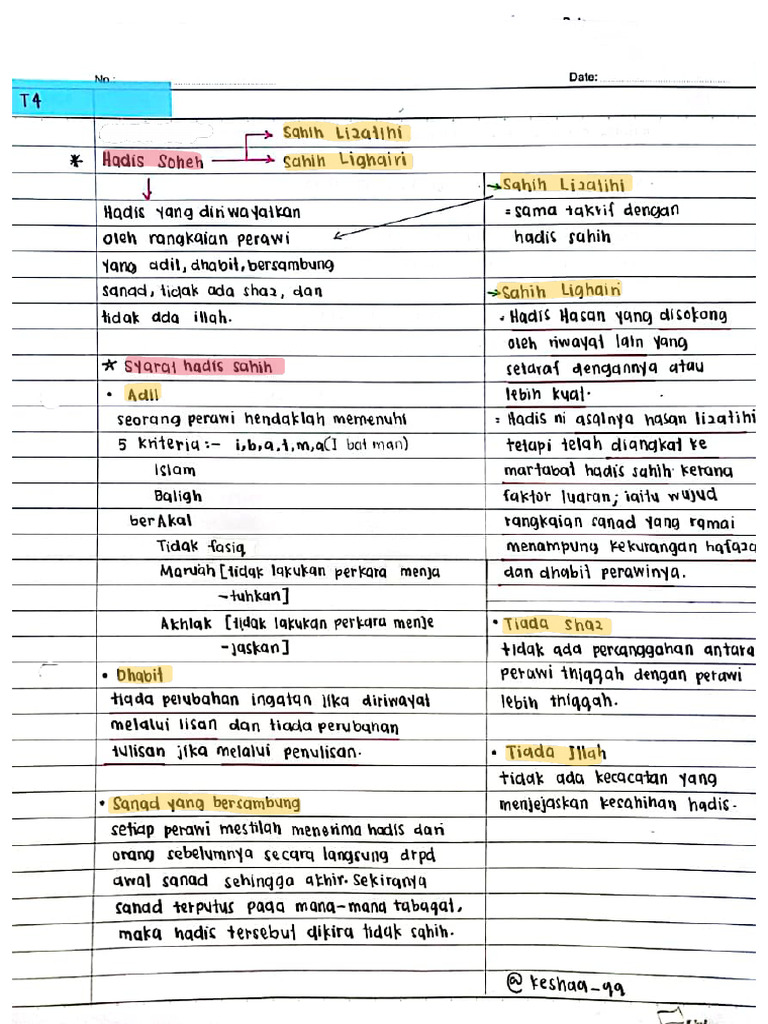 No.:
Date:
T4
Sahih Lizatihi
* Hadis Soheh
Sahih Lighairi
Hadis yang diriwayatkan
oleh rangkaian perawi
yang adil, dhabit, bersambung
sanad, tidak ada shaz, dan
tidak ada illah.
* Syarat hadis sahih
• Adil
seorang perawi hendaklah memenuhi
5 kriteria :- i,b,a,t,m,a (I bat man)
Islam
Baligh
berAkal
Tidak fasiq
Maruah [tidak lakukan perkara menja
-tuhkan]
Akhlak [tidak lakukan perkara menje
-jaskan]
• Dhabit
tiada perubahan ingatan jika diriwayat
melalui lisan dan tiada perubahan
tulisan jika melalui penulisan.
• Sanad yang bersambung
setiap perawi mestilah menerima hadis dari
orang sebelumnya secara langsung drpd
awal sanad sehingga akhir. Sekiranya
sanad terputus pada mana-mana tabaqat,
maka hadis tersebut dikira tidak sahih.
Sahih Lizatihi
= sama takrif dengan
hadis sahih
Sahih Lighairi
= Hadis Hasan yang disokong
oleh riwayat lain yang
setaraf dengannya atau
lebih kuat.
= Hadis ni asalnya hasan lizatihi
tetapi telah diangkat ke
martabat hadis sahih kerana
faktor luaran; iaitu wujud
rangkaian sanad yang ramai
menampung kekurangan hafaza
dan dhabit perawinya.
• Tiada Shaz
tidak ada percanggahan antara
perawi thiqqah dengan perawi
lebih thiqqah.
• Tiada Illah
tidak ada kecacatan yang
menjejaskan kesahihan hadis.
@keshaa_qq